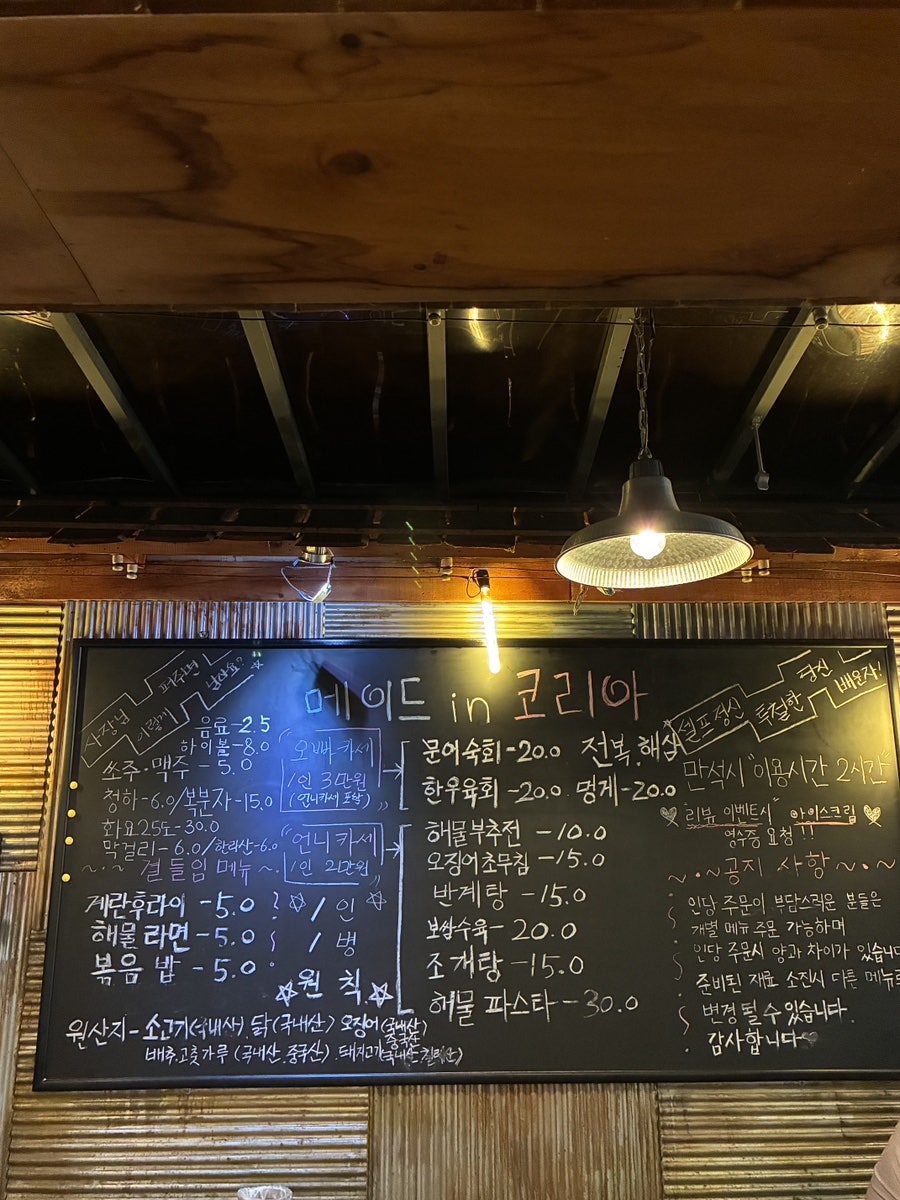 메이드 in 코리아
사장님
이렇게
퍼주면
남아요?
음료-2.5
하이볼-8.0
쏘주·맥주 - 5.0
청하-6.0/복분자-15.0
화요25도-30.0
막걸리-6.0/한라산-6.0
~·~ 곁들임 메뉴 ~·
계란후라이 -5.0
해물라면-5.0
볶음밥 -5.0
"오빠카세
1인 3만원
(언니카세 포함)"
"언니카세
1인 2만원"
☆ 1인 ☆
1병
☆원칙☆
문어숙회-20.0 전복,해삼
한우육회-20.0 멍게-20.0
해물부추전 -10.0
오징어초무침 -15.0
반계탕 -15.0
보쌈수육- 20.0
조개탕-15.0
해물 파스타-30.0
셀프정신
투철한
당신
배운자!
만석시 "이용시간 2시간"
♡ 리뷰 이벤트시 아이스크림 ♡
영수증 요청!!
~·~공지 사항~·~
인당 주문이 부담스러운 분들은
개별 메뉴 주문 가능하며
인당 주문시 양과 차이가 있습니다
준비된 재료 소진시 다른 메뉴로
변경 될 수 있습니다.
감사합니다♡
원산지- 소고기(국내산). 닭(국내산) 오징어(국내산, 중국산)
배추.고춧가루 (국내산.중국산). 돼지고기(국내산.칠레산)